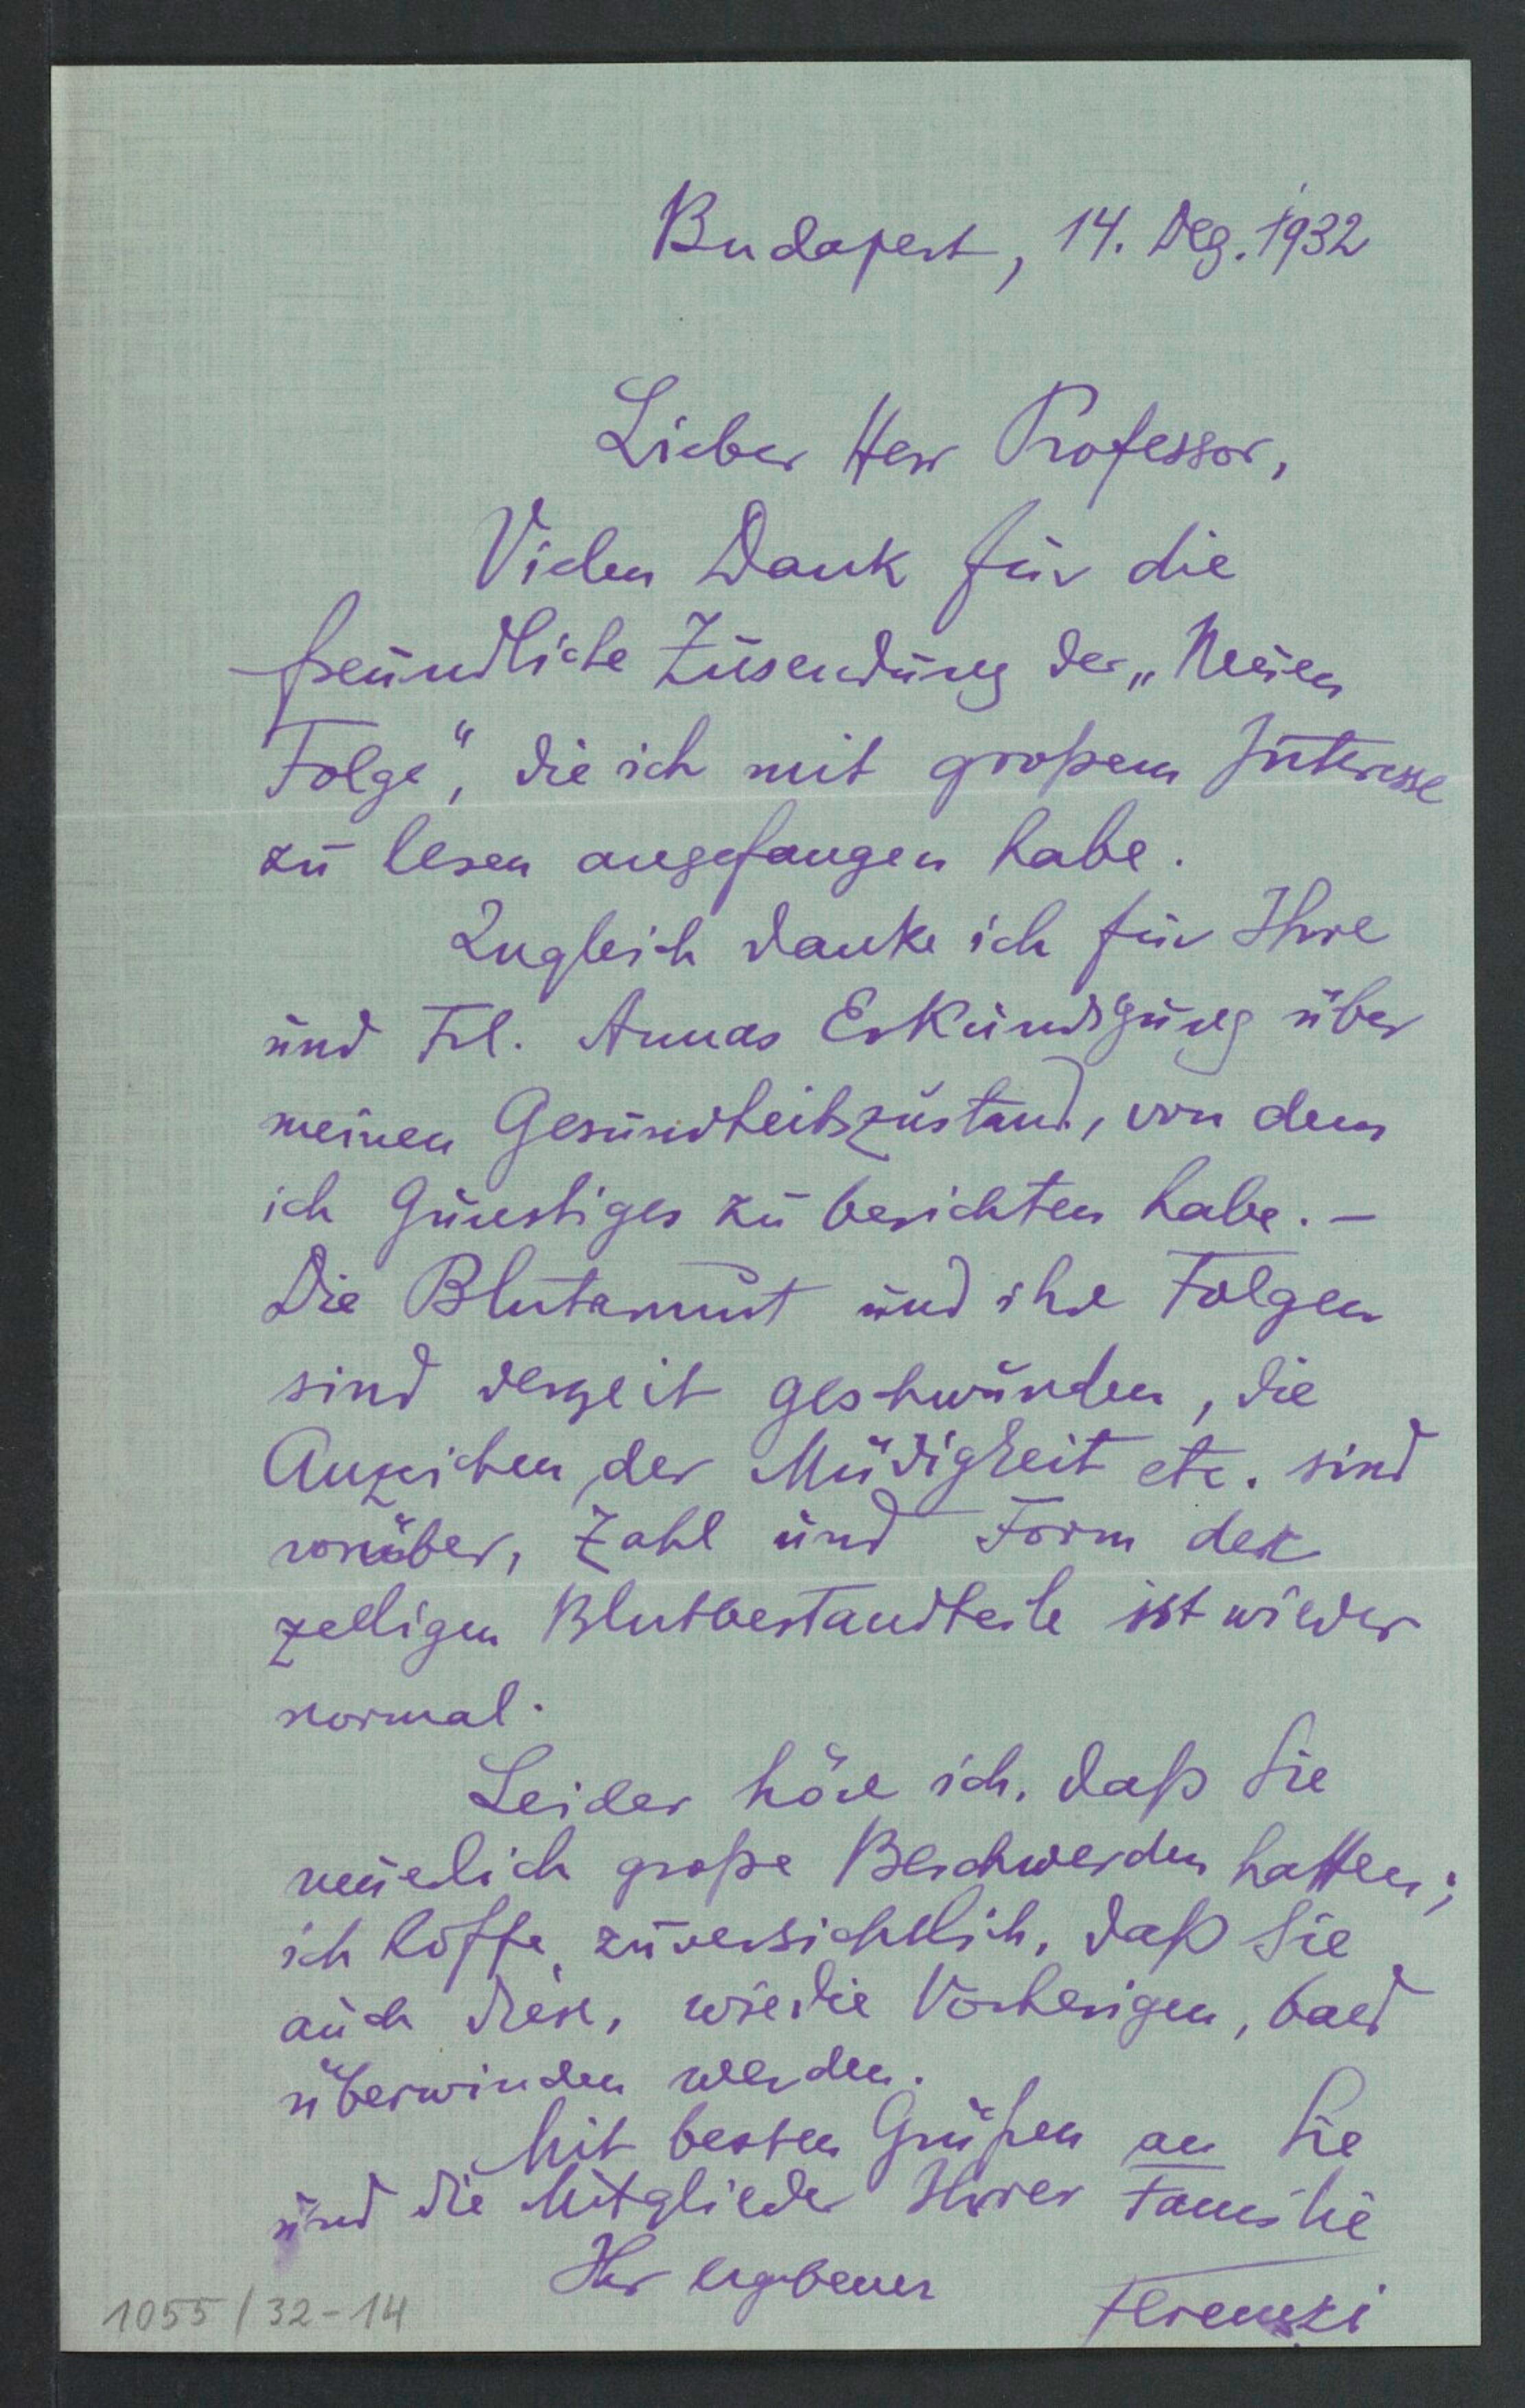 Budapest, 14. Dez. 1932
Lieber Herr Professor,
Vielen Dank für die
freundliche Zusendung der „Neuen
Folge“, die ich mit großem Interesse
zu lesen angefangen habe.
Zugleich danke ich für Ihre
und Frl. Annas Erkundigung über
meinen Gesundheitszustand, von dem
ich Günstiges zu berichten habe. –
Die Blutarmut und ihre Folgen
sind derzeit geschwunden, die
Anzeichen der Müdigkeit etc. sind
vorüber, Zahl und Form der
zelligen Blutbestandteile ist wieder
normal.
Leider höre ich, daß Sie
neuerlich große Beschwerden hatten;
ich hoffe zuversichtlich, daß Sie
auch diese, wie die Vorherigen, bald
überwinden werden.
Mit besten Grüßen an Sie
und die Mitglieder Ihrer Familie
Ihr ergebener
Ferenczi
1055/32-14